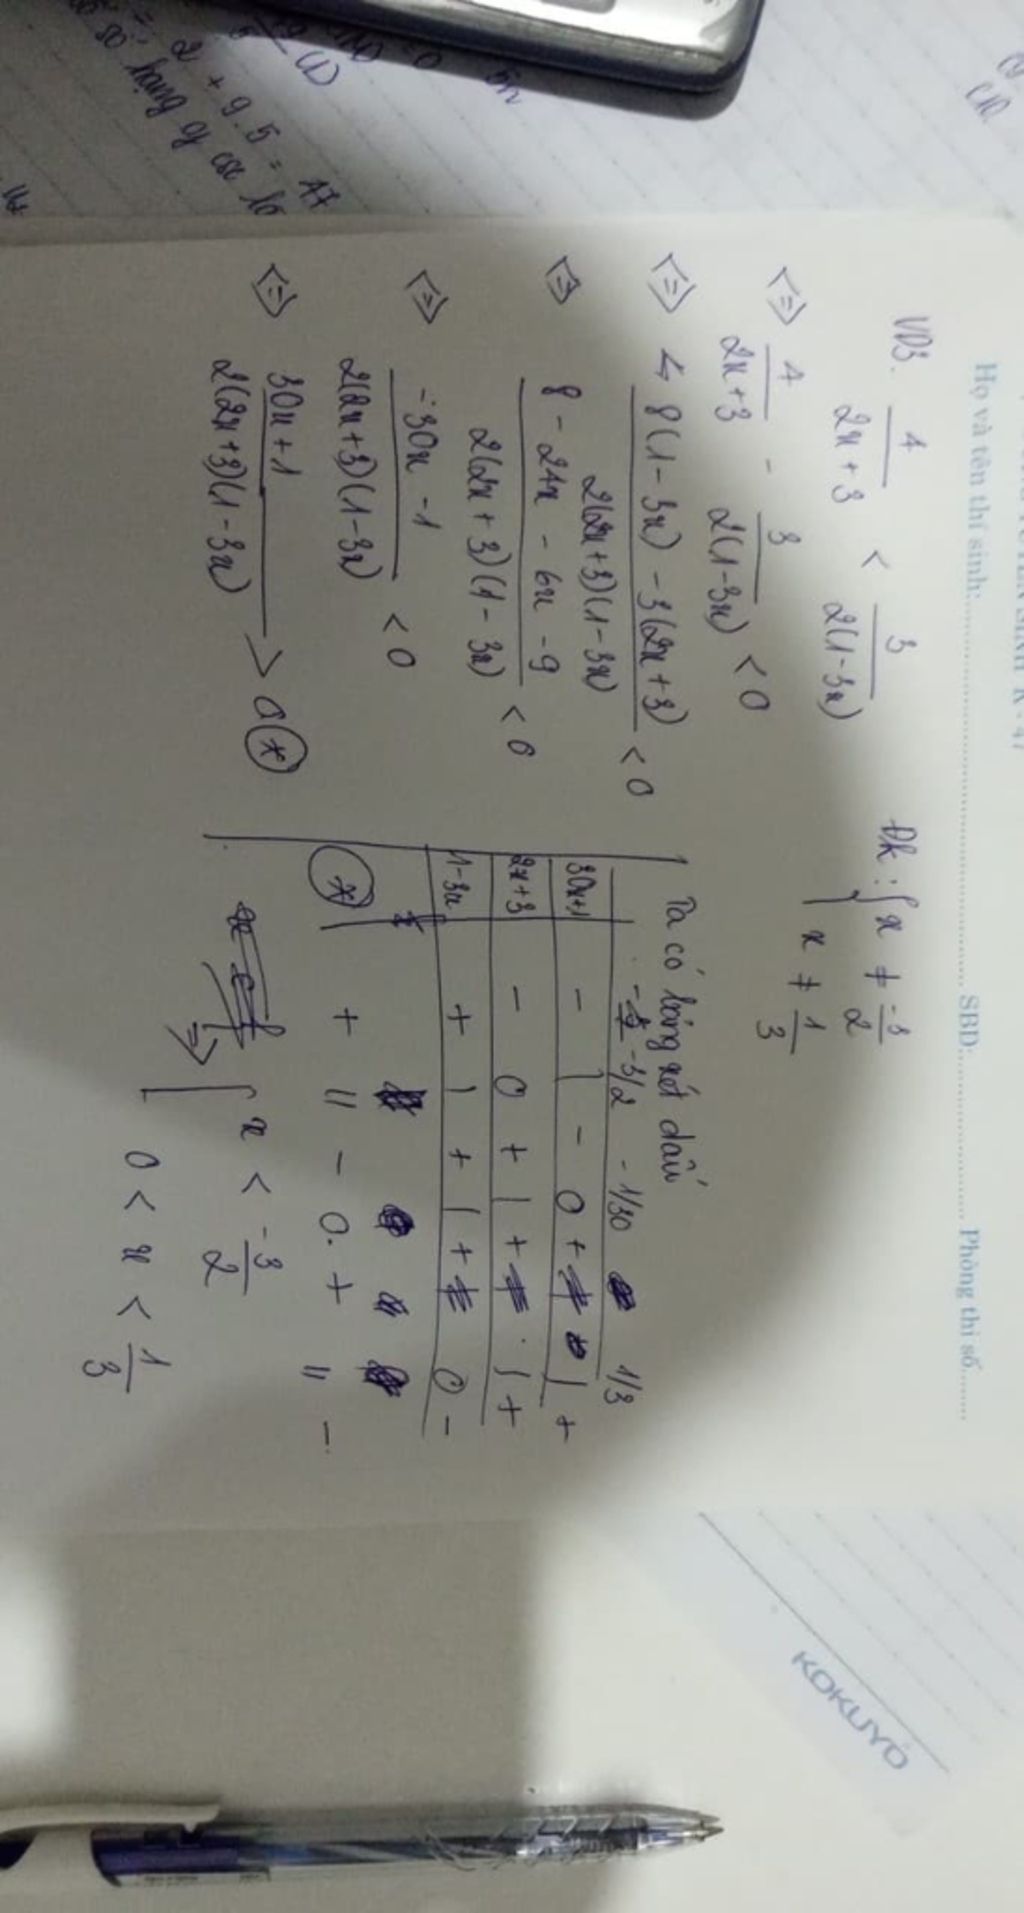 Họ và tên thí sinh: SBD: Phòng thi số
VD3. 4/(2x+3) < 3/(2(1-3x)) ĐK: { x ≠ -3/2
x ≠ 1/3
<=> 4/(2x+3) - 3/(2(1-3x)) < 0
<=> (8(1-3x) - 3(2x+3))/(2(2x+3)(1-3x)) < 0
<=> (8 - 24x - 6x - 9)/(2(2x+3)(1-3x)) < 0
<=> (-30x - 1)/(2(2x+3)(1-3x)) < 0
<=> (30x+1)/(2(2x+3)(1-3x)) > 0 (*)
Ta có bảng xét dấu
-3/2 -1/30 1/3
30x+1 - | - 0 + | +
2x+3 - 0 + | + | +
1-3x + | + | + 0 -
(*) + || - 0 + || -
=> [ x < -3/2
0 < x < 1/3
KOKUYO